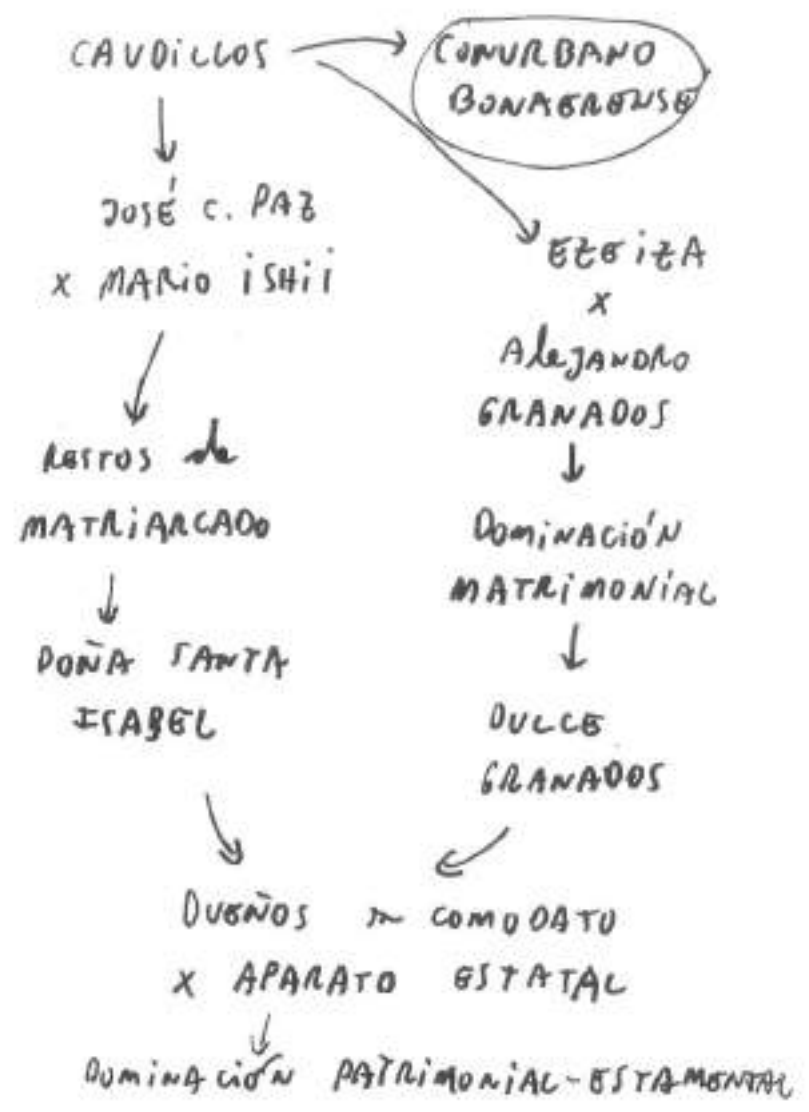 CAUDILLOS
CONURBANO
BONAERENSE
JOSÉ C. PAZ
X MARIO ISHII
RESTOS de
MATRIARCADO
DOÑA SANTA
ISABEL
EZEIZA
X
AleJANDRO
GRANADOS
DOMINACIÓN
MATRIMONIAL
DULCE
GRANADOS
DUEÑOS COMODATO
X APARATO ESTATAL
DOMINACIÓN PATRIMONIAL-ESTAMENTAL